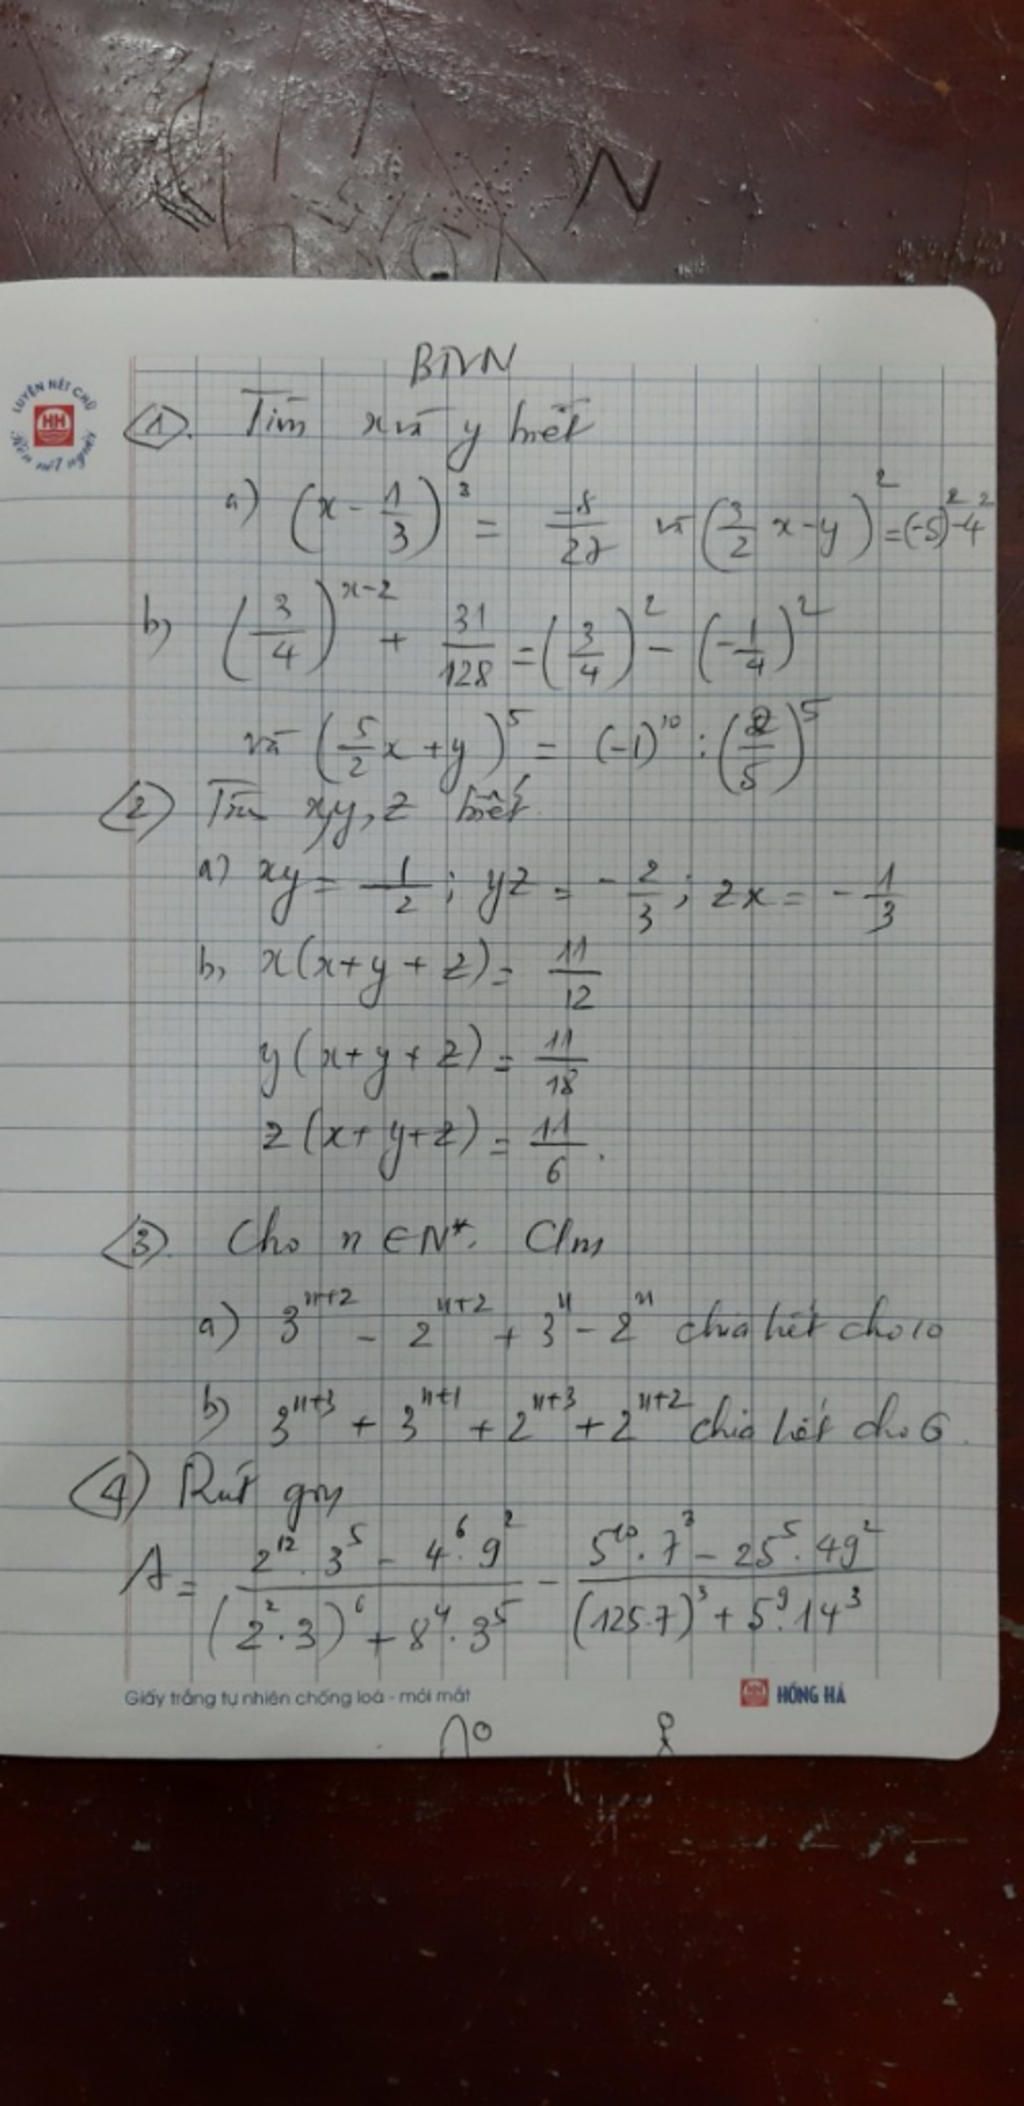 N
BTVN
LUYỆN NÉT CHỮ
HH
Rèn nết người
① Tìm x và y biết
a) (x - 1/3)³ = -8/27 và (3/2 x - y)² = (-5)² - 4²
b) (3/4)^(x-2) + 31/128 = (3/4)² - (-1/4)²
và (5/2 x + y)⁵ = (-1)¹⁰ : (2/5)⁵
② Tìm x,y,z biết
a) xy = 1/2 ; yz = -2/3 ; zx = -1/3
b, x(x+y+z) = 11/12
y(x+y+z) = 11/18
z(x+y+z) = 11/6.
③ Cho n ∈ N*. Cm
a) 3^(n+2) - 2^(n+2) + 3^n - 2^n chia hết cho 10
b) 3^(n+3) + 3^(n+1) + 2^(n+3) + 2^(n+2) chia hết cho 6.
④ Rút gọn
A = (2¹².3⁵ - 4⁶.9²)/((2².3)⁶ + 8⁴.3⁵) - (5¹⁰.7³ - 25⁵.49²)/((125.7)³ + 5⁹.14³)
Giấy trắng tự nhiên chống loá - mỏi mắt
HH HỒNG HÀ